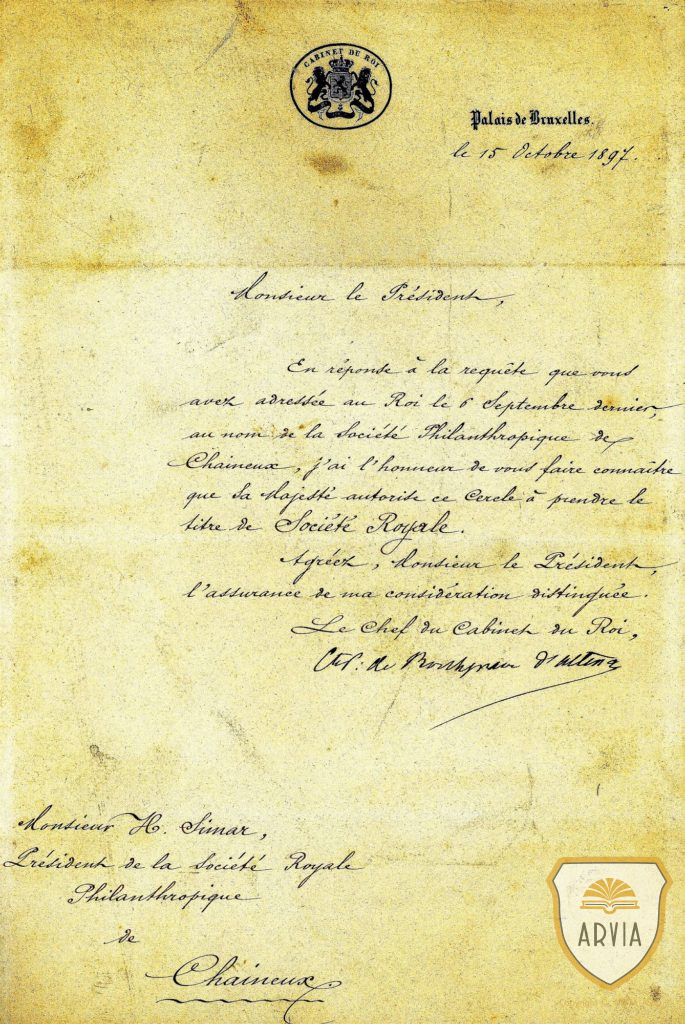 CABINET DU ROI
Palais de Bruxelles.
le 15 Octobre 1897.
Monsieur le Président,
En réponse à la requête que vous
avez adressée au Roi le 6 Septembre dernier,
au nom de la Société Philanthropique de
Chaineux, j'ai l'honneur de vous faire connaître
que Sa Majesté autorise ce Cercle à prendre le
titre de Société Royale.
Agréez, Monsieur le Président,
l'assurance de ma considération distinguée.
Le Chef du Cabinet du Roi,
de d'altena
Monsieur H. Simar,
Président de la Société Royale
Philanthropique
de
Chaineux
ARVIA